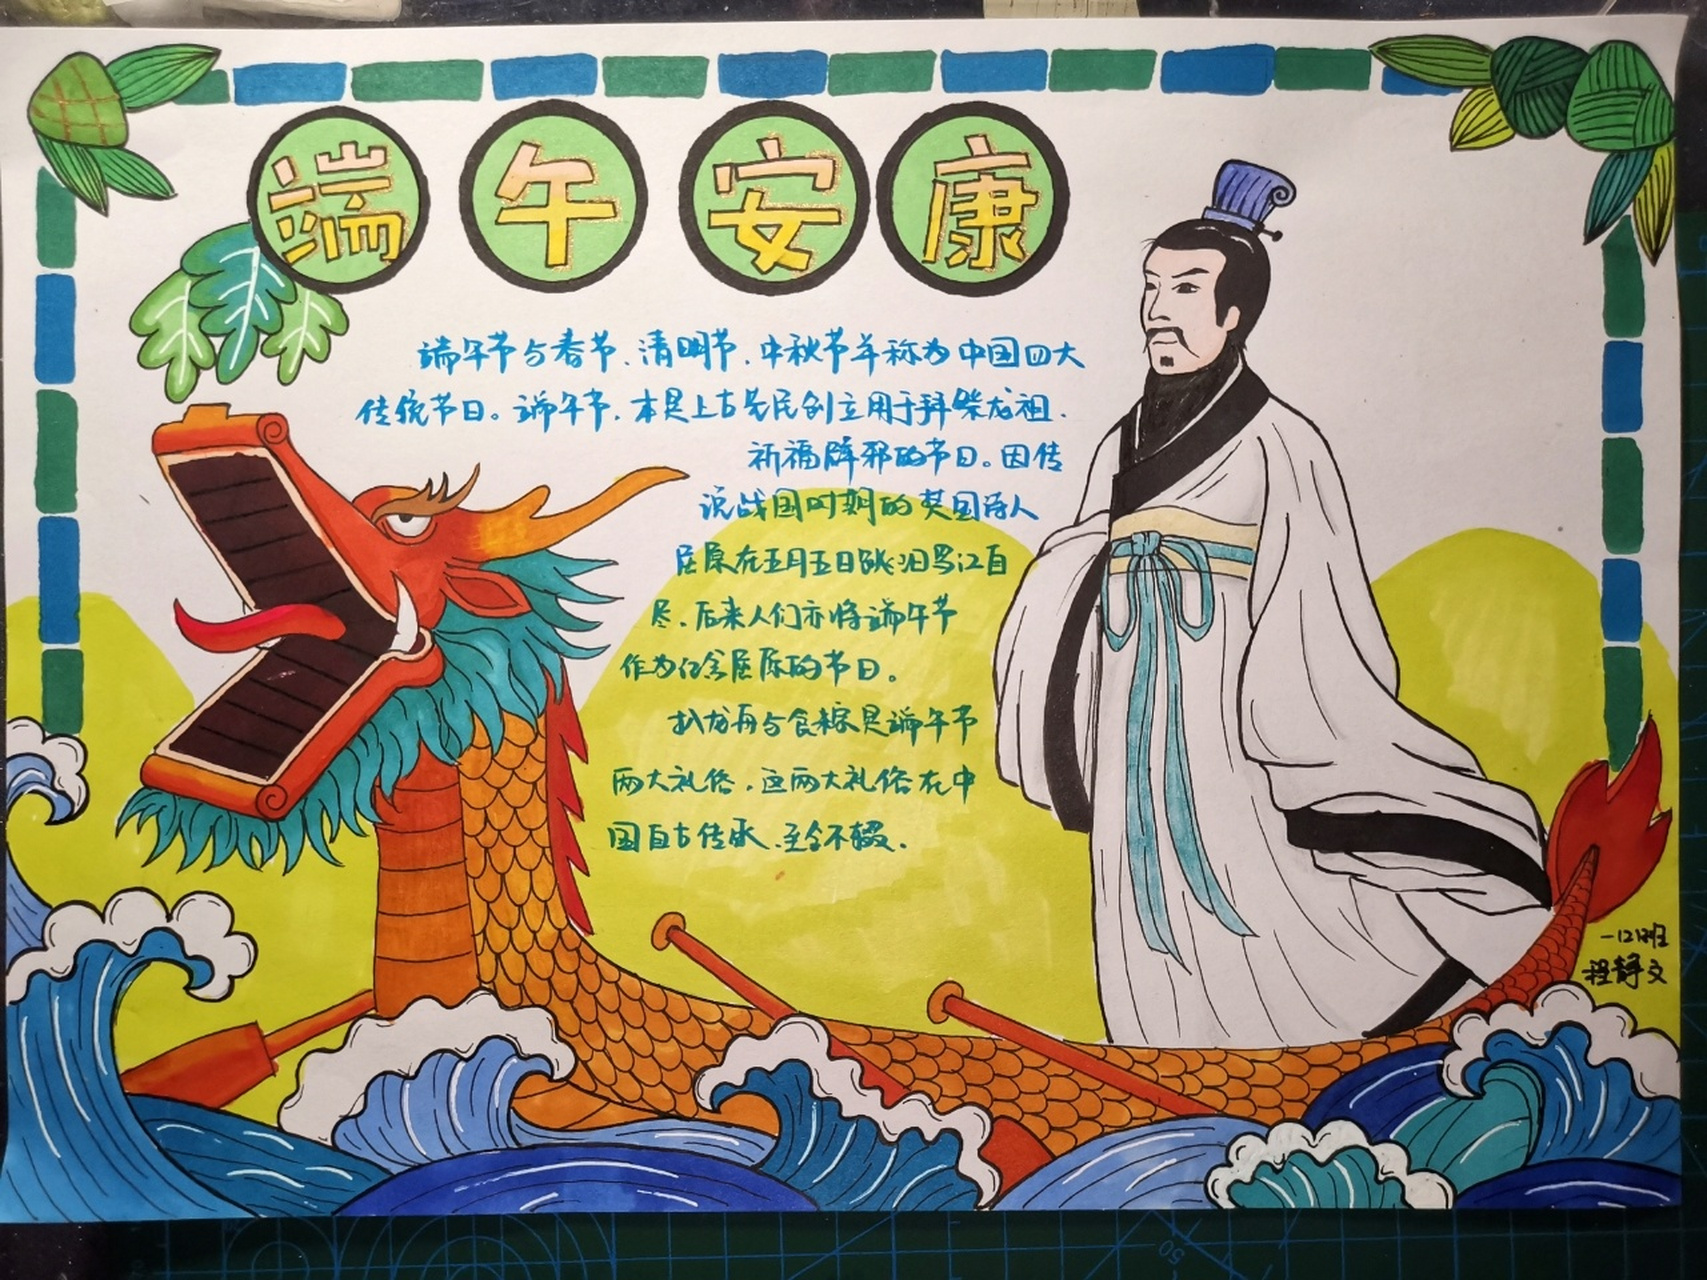 端午安康
端午节与春节、清明节、中秋节并称为中国四大
传统节日。端午节，本是上古先民创立用于拜祭龙祖、
祈福辟邪的节日。因传
说战国时期的楚国诗人
屈原在五月五日跳汨罗江自
尽，后来人们亦将端午节
作为纪念屈原的节日。
扒龙舟与食粽是端午节
两大礼俗，这两大礼俗在中
国自古传承，至今不辍。
一12班
程静文